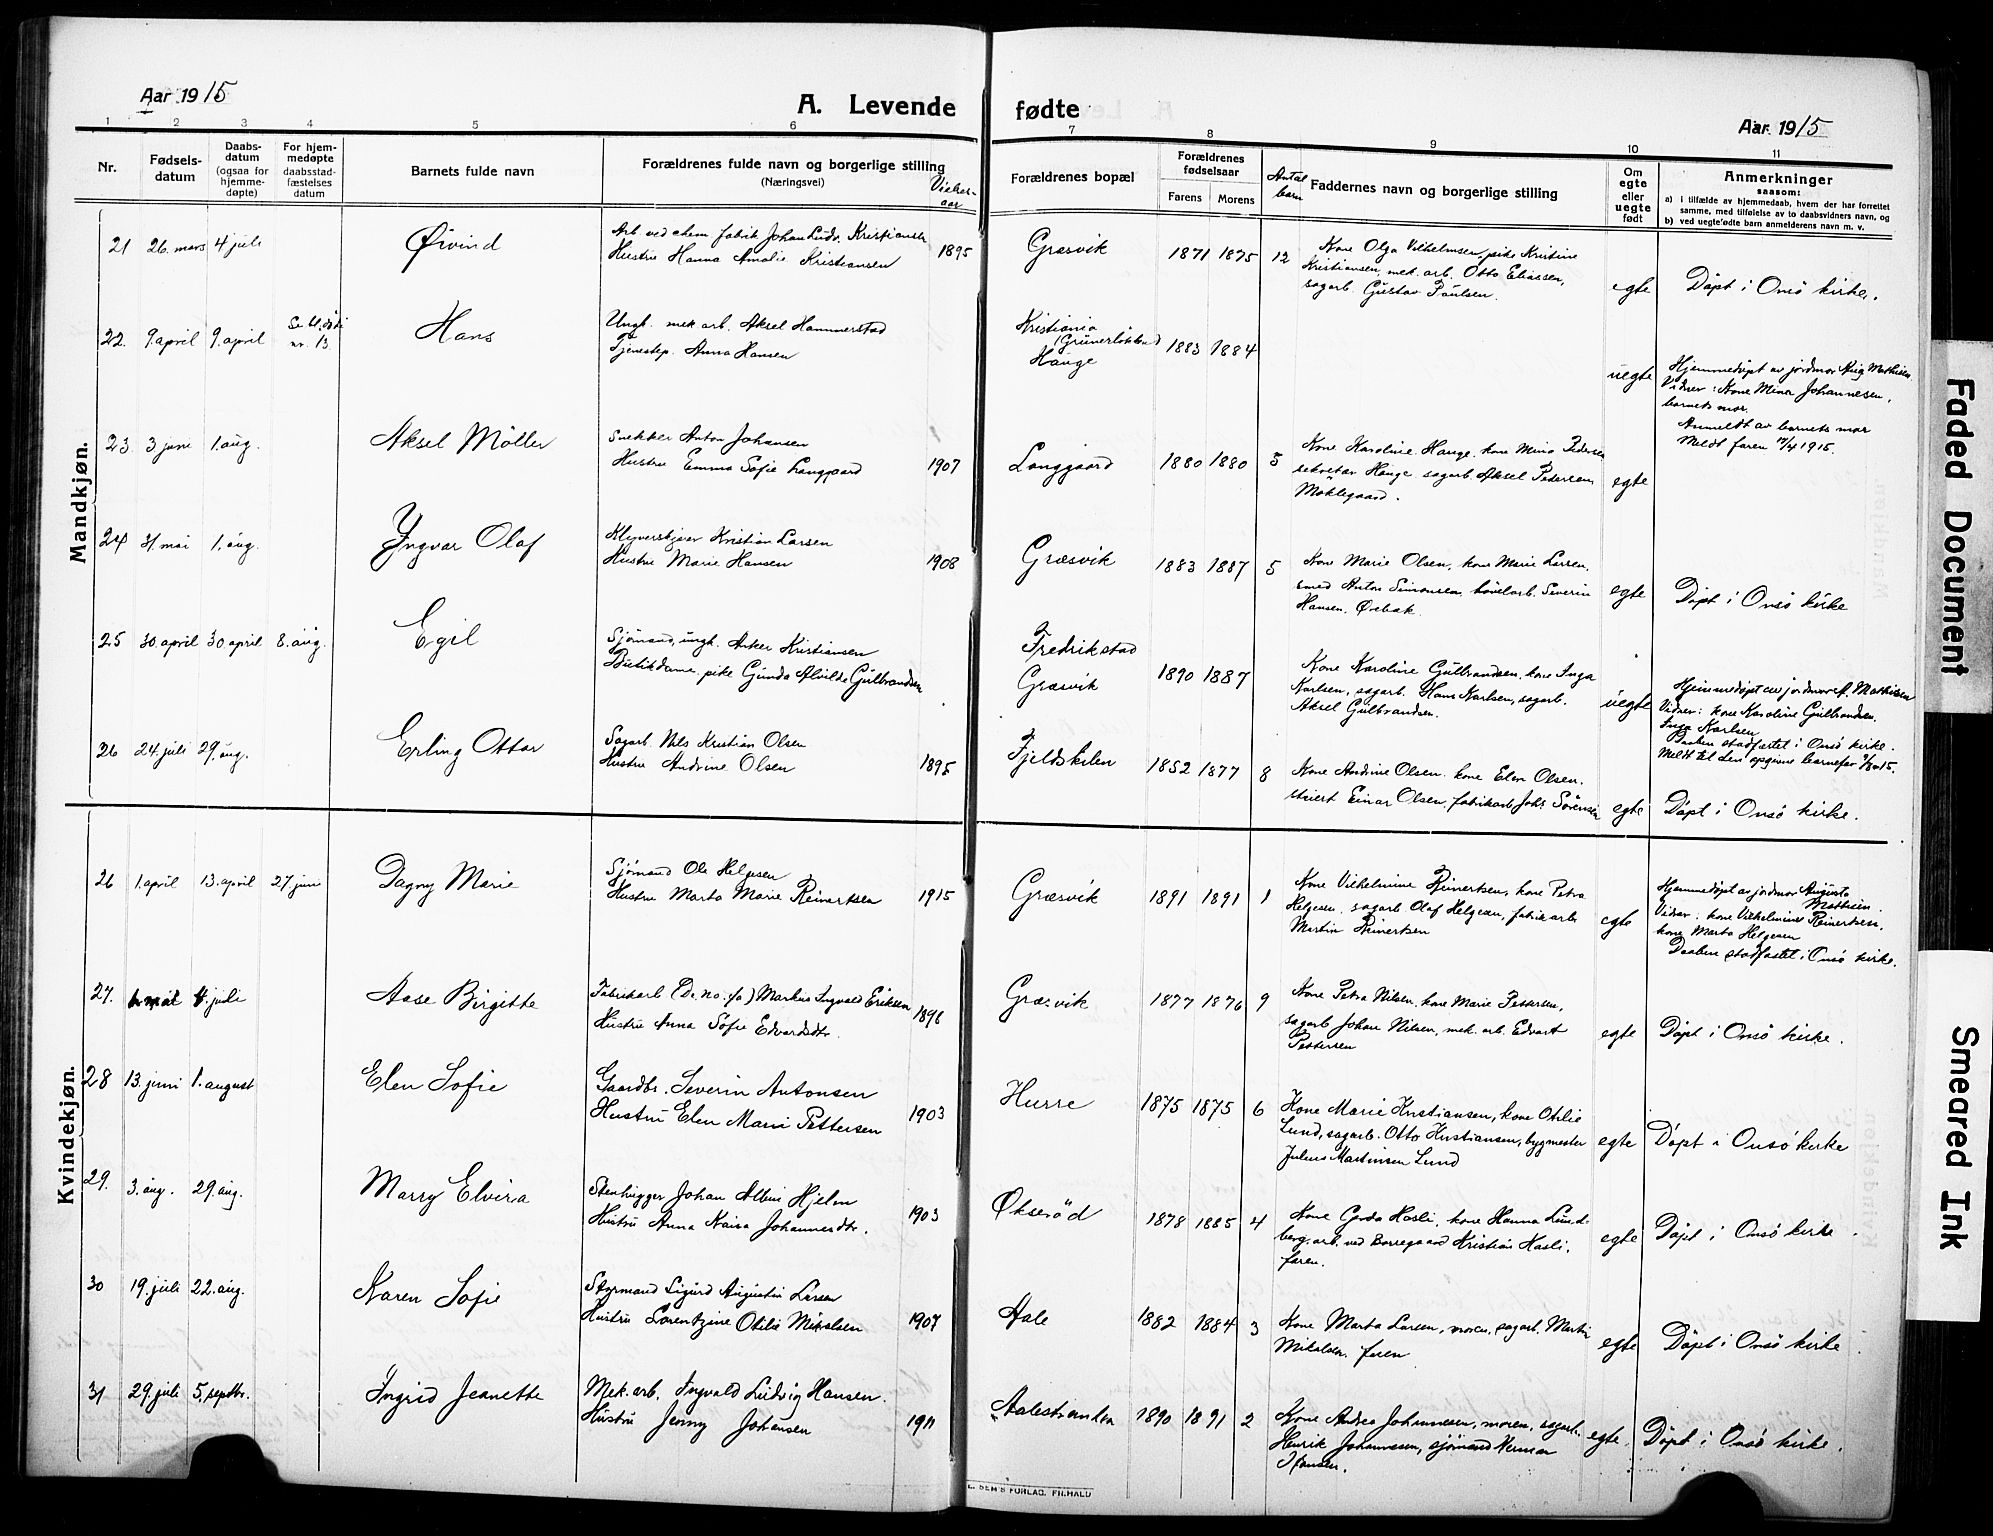 Aar 1915
A. Levende fødte
Aar 1915
1 2 3 4 5 6 7 8 9 10 11
Nr.
Fødsels-
datum
Daabs-
datum
(ogsaa for
hjemme-
døpte)
For hjem-
medøpte
daabsstad-
fæstelses
datum
Barnets fulde navn
Forældrenes fulde navn og borgerlige stilling
(Næringsvei)
Vielses-
aar
Forældrenes bopæl
Forældrenes
fødselsaar
Farens Morens
Antal
barn
Faddernes navn og borgerlige stilling
Om
egte
eller
uegte
født
Anmerkninger
saasom:
a) i tilfælde av hjemmedaab, hvem der har forrettet
samme, med tilføielse av to daabsvidners navn, og
b) ved uegte fødte barn anmelderens navn m. v.
Mandkjøn.
21 26. mars 4 juli
Øivind
Arb. ved chem. fabrik Johan Ludv. Kristiansen
Hustru Hanna Amalie Kristiansen
1895
Græsvik
1871 1875 12
Kone Olga Vilhelmsen, pike Kristine
Kristiansen, mek. arb. Otto Eliassen,
sagarb. Gustav Paulsen.
egte
Döpt i Onsö kirke.
22. 9. april 9. april
nr. 13.
Hans
Ungk. mek. arb. Aksel Hammerstad
Tjenestep. Anna Hansen
Kristiania
(Grünerløkken)
Hauge
1883 1884
uegte
Hjemmedöpt av jordmor Aug. Mathisen.
Vidner: Kone Mina Johannesen,
barnets mor.
Anmeldt av barnets mor
Meldt faren 1915.
23 3 juni 1. aug.
Aksel Möller
Snekker Anton Johansen
Hustru Emma Sofie Langgaard
1907
Langgaard
1880 1880 5
Kone Karoline Hauge, kone Mina Pedersen
sekretær Hauge, sagarb. Aksel Pedersen
Möklegaard.
egte
24 31. mai 1. aug.
Yngvar Olaf
Kristian Larsen
Hustru Marie Hansen
1908
Græsvik
1883 1887 5
Kone Marie Olsen, kone Marie Larsen,
smed Anton Simonsen, hövelarb. Severin
Hansen, Örebæk.
egte
Döpt i Onsö kirke
25 30. april 30 april 8. aug.
Egil
Sjömand, ungk. Anker Kristiansen
Butikdame, pike Gunda Alvilde Gulbrandsen
Fredrikstad
Græsvik
1890 1887
Kone Karoline Gulbrandsen, kone Inga
Karlsen, sagarb. Hans Karlsen, sagarb.
Aksel Gulbrandsen.
uegte
Hjemmedöpt av jordmor A. Mathisen
Vidner: kone Karoline Gulbrandsen.
Inga Karlsen
Daaben stadfæstet i Onsö kirke.
Meldt til den opgivne barnefar 15.
26 24. juli 29. aug.
Erling Ottar
Sagarb. Nils Kristian Olsen
Hustru Andrine Olsen
1895
Fjeldskilen
1852 1877 8
Kone Andrine Olsen, kone Elen Olsen,
Einar Olsen, fabrikarb. Johs. Sörensen
egte
Döpt i Onsö kirke.
Kvindekjøn.
26 1. april 13. april 27. juni
Dagny Marie
Sjömand Ole Helgesen
Hustru Marta Marie Reinertsen
1915
Græsvik
1891 1891 1
Kone Vilhelmine Reinertsen, kone Petra
Helgesen, sagarb. Olaf Helgesen, fabrikarb.
Martin Reinertsen
egte
Hjemmedöpt av jordmor Augusta
Mathisen.
Vidner: kone Vilhelmine Reinertsen,
kone Marta Helgesen
Daaben stadfæstet i Onsö kirke.
27. mai 4. juli
Aase Birgitte
Fabrikarb. (De. no. fa) Markus Ingvald Eriksen
Hustru Anna Sofie Edvardsdtr.
1896
Græsvik
1877 1876 9
Kone Petra Nilsen, kone Marie Pettersen,
sagarb. Johan Nilsen, mek. arb. Edvart
Pettersen
egte
Döpt i Onsö kirke.
28 13. juni 1. august
Elen Sofie
Gaardbr. Severin Antonsen
Hustru Elen Marie Pettersen
1903
Hurre
1875 1875 6
Kone Marie Kristiansen, kone Otilie
Lund, sagarb. Otto Kristiansen, bygmester
Julius Martinsen Lund
egte
Döpt i Onsö kirke
29. 3. aug. 29. aug.
Marry Elvira
Stenhugger Johan Albin Hjelm
Hustru Anna Kaisa Johannesdtr.
1903
Økseröd
1878 1885 4
Kone Gerda Hasli, kone Hanna Lund-
berg, arb. ved Borregaard Kristian Hasli,
faren.
egte
Döpt i Onsö kirke.
30 19. juli 22. aug.
Karen Sofie
Styrmand Sigurd Augustin Larsen
Hustru Lorentzine Otilie Mikalsen
1907
Aale
1882 1884 3
Kone Marta Larsen, moren, sagarb. Martin
Mikalsen, faren
egte
Döpt i Onsö kirke.
31 29. juli 5. septbr.
Ingrid Jeanette
Mek. arb. Ingvald Ludvig Hansen.
Hustru Jenny Johansen
1911
Aalestranden
1890 1891 2
Kone Andrea Johannesen, moren, sagarb.
Henrik Johannesen, sjömand Herman
Hansen.
egte.
Döpt i Onsö kirke.
E. SEM'S FORLAG. FR.HALD
Faded Document
Smeared Ink